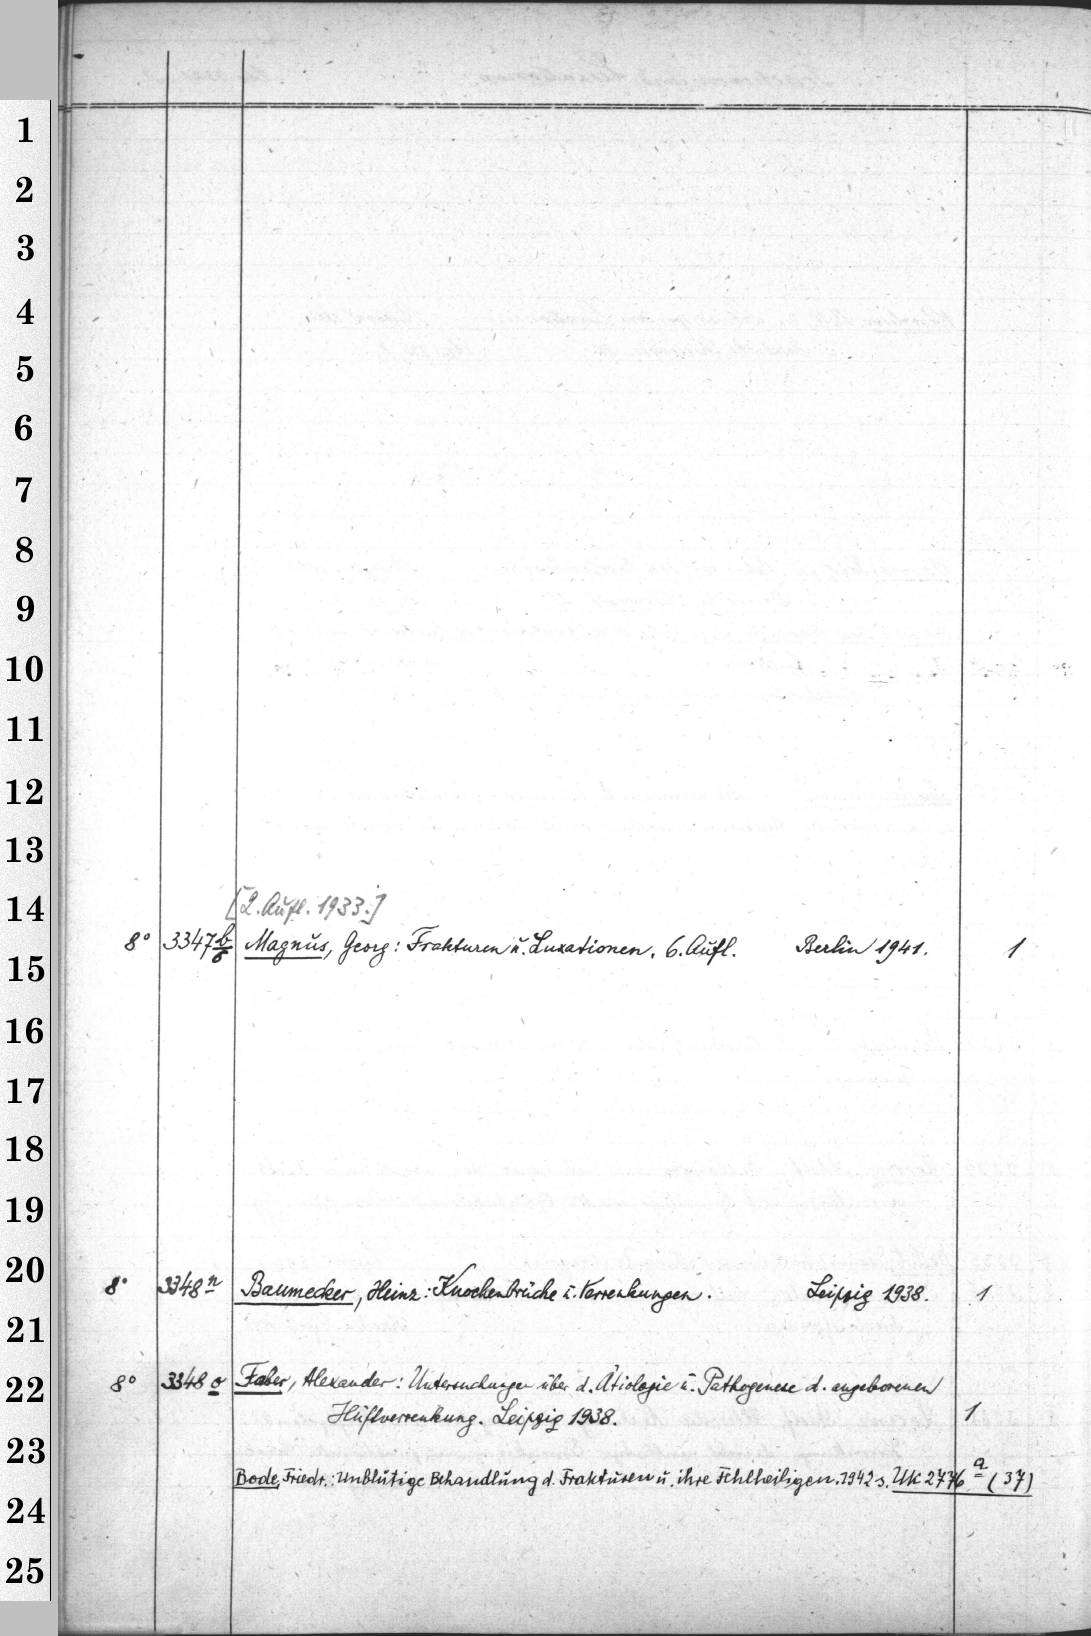 1
2
3
4
5
6
7
8
9
10
11
12
13
14
[2. Aufl. 1933.]
8° 3347 b/8 Magnus, Georg: Frakturen u. Luxationen. 6. Aufl. Berlin 1941. 1
15
16
17
18
19
20
8° 3348 n Baumecker, Heinz: Knochenbrüche u. Verrenkungen. Leipzig 1938. 1
21
22
8° 3348 o Faber, Alexander: Untersuchungen über d. Ätiologie u. Pathogenese d. angeborenen
Hüftverrenkung. Leipzig 1938. 1
23
Bode, Friedr.: Unblutige Behandlung d. Frakturen u. ihre Fehlheiligen. 1942 s. UK 2776 a (37)
24
25